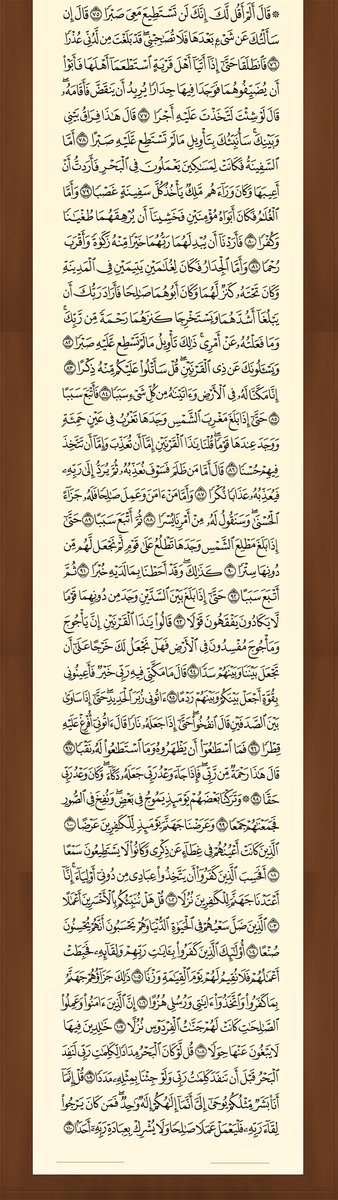 ۞ قَالَ أَلَمْ أَقُل لَّكَ إِنَّكَ لَن تَسْتَطِيعَ مَعِىَ صَبْرًا ٧٥ قَالَ إِن
سَأَلْتُكَ عَن شَىْءٍۭ بَعْدَهَا فَلَا تُصَٰحِبْنِى ۖ قَدْ بَلَغْتَ مِن لَّدُنِّى عُذْرًا
٧٦ فَٱنطَلَقَا حَتَّىٰٓ إِذَآ أَتَيَآ أَهْلَ قَرْيَةٍ ٱسْتَطْعَمَآ أَهْلَهَا فَأَبَوْا۟
أَن يُضَيِّفُوهُمَا فَوَجَدَا فِيهَا جِدَارًا يُرِيدُ أَن يَنقَضَّ فَأَقَامَهُۥ ۖ
قَالَ لَوْ شِئْتَ لَتَّخَذْتَ عَلَيْهِ أَجْرًا ٧٧ قَالَ هَٰذَا فِرَاقُ بَيْنِى
وَبَيْنِكَ ۚ سَأُنَبِّئُكَ بِتَأْوِيلِ مَا لَمْ تَسْتَطِع عَّلَيْهِ صَبْرًا ٧٨ أَمَّا
ٱلسَّفِينَةُ فَكَانَتْ لِمَسَٰكِينَ يَعْمَلُونَ فِى ٱلْبَحْرِ فَأَرَدتُّ أَنْ
أَعِيبَهَا وَكَانَ وَرَآءَهُم مَّلِكٌ يَأْخُذُ كُلَّ سَفِينَةٍ غَصْبًا ٧٩ وَأَمَّا
ٱلْغُلَٰمُ فَكَانَ أَبَوَاهُ مُؤْمِنَيْنِ فَخَشِينَآ أَن يُرْهِقَهُمَا طُغْيَٰنًا
وَكُفْرًا ٨٠ فَأَرَدْنَآ أَن يُبْدِلَهُمَا رَبُّهُمَا خَيْرًا مِّنْهُ زَكَوٰةً وَأَقْرَبَ
رُحْمًا ٨١ وَأَمَّا ٱلْجِدَارُ فَكَانَ لِغُلَٰمَيْنِ يَتِيمَيْنِ فِى ٱلْمَدِينَةِ
وَكَانَ تَحْتَهُۥ كَنزٌ لَّهُمَا وَكَانَ أَبُوهُمَا صَٰلِحًا فَأَرَادَ رَبُّكَ أَن
يَبْلُغَآ أَشُدَّهُمَا وَيَسْتَخْرِجَا كَنزَهُمَا رَحْمَةً مِّن رَّبِّكَ ۚ
وَمَا فَعَلْتُهُۥ عَنْ أَمْرِى ۚ ذَٰلِكَ تَأْوِيلُ مَا لَمْ تَسْطِع عَّلَيْهِ صَبْرًا ٨٢
وَيَسْـَٔلُونَكَ عَن ذِى ٱلْقَرْنَيْنِ ۖ قُلْ سَأَتْلُوا۟ عَلَيْكُم مِّنْهُ ذِكْرًا ٨٣
إِنَّا مَكَّنَّا لَهُۥ فِى ٱلْأَرْضِ وَءَاتَيْنَٰهُ مِن كُلِّ شَىْءٍ سَبَبًا ٨٤ فَأَتْبَعَ سَبَبًا
٨٥ حَتَّىٰٓ إِذَا بَلَغَ مَغْرِبَ ٱلشَّمْسِ وَجَدَهَا تَغْرُبُ فِى عَيْنٍ حَمِئَةٍ
وَوَجَدَ عِندَهَا قَوْمًا ۗ قُلْنَا يَٰذَا ٱلْقَرْنَيْنِ إِمَّآ أَن تُعَذِّبَ وَإِمَّآ أَن تَتَّخِذَ
فِيهِمْ حُسْنًا ٨٦ قَالَ أَمَّا مَن ظَلَمَ فَسَوْفَ نُعَذِّبُهُۥ ثُمَّ يُرَدُّ إِلَىٰ رَبِّهِۦ
فَيُعَذِّبُهُۥ عَذَابًا نُّكْرًا ٨٧ وَأَمَّا مَنْ ءَامَنَ وَعَمِلَ صَٰلِحًا فَلَهُۥ جَزَآءً
ٱلْحُسْنَىٰ ۖ وَسَنَقُولُ لَهُۥ مِنْ أَمْرِنَا يُسْرًا ٨٨ ثُمَّ أَتْبَعَ سَبَبًا ٨٩ حَتَّىٰٓ
إِذَا بَلَغَ مَطْلِعَ ٱلشَّمْسِ وَجَدَهَا تَطْلُعُ عَلَىٰ قَوْمٍ لَّمْ نَجْعَل لَّهُم مِّن
دُونِهَا سِتْرًا ٩٠ كَذَٰلِكَ وَقَدْ أَحَطْنَا بِمَا لَدَيْهِ خُبْرًا ٩١ ثُمَّ
أَتْبَعَ سَبَبًا ٩٢ حَتَّىٰٓ إِذَا بَلَغَ بَيْنَ ٱلسَّدَّيْنِ وَجَدَ مِن دُونِهِمَا قَوْمًا
لَّا يَكَادُونَ يَفْقَهُونَ قَوْلًا ٩٣ قَالُوا۟ يَٰذَا ٱلْقَرْنَيْنِ إِنَّ يَأْجُوجَ
وَمَأْجُوجَ مُفْسِدُونَ فِى ٱلْأَرْضِ فَهَلْ نَجْعَلُ لَكَ خَرْجًا عَلَىٰٓ أَن
تَجْعَلَ بَيْنَنَا وَبَيْنَهُمْ سَدًّا ٩٤ قَالَ مَا مَكَّنِّى فِيهِ رَبِّى خَيْرٌ فَأَعِينُونِى
بِقُوَّةٍ أَجْعَلْ بَيْنَكُمْ وَبَيْنَهُمْ رَدْمًا ٩٥ ءَاتُونِى زُبَرَ ٱلْحَدِيدِ ۖ حَتَّىٰٓ إِذَا سَاوَىٰ
بَيْنَ ٱلصَّدَفَيْنِ قَالَ ٱنفُخُوا۟ ۖ حَتَّىٰٓ إِذَا جَعَلَهُۥ نَارًا قَالَ ءَاتُونِىٓ أُفْرِغْ عَلَيْهِ
قِطْرًا ٩٦ فَمَا ٱسْطَٰعُوٓا۟ أَن يَظْهَرُوهُ وَمَا ٱسْتَطَٰعُوا۟ لَهُۥ نَقْبًا ٩٧
قَالَ هَٰذَا رَحْمَةٌ مِّن رَّبِّى ۖ فَإِذَا جَآءَ وَعْدُ رَبِّى جَعَلَهُۥ دَكَّآءَ ۖ وَكَانَ وَعْدُ رَبِّى
حَقًّا ٩٨ ۞ وَتَرَكْنَا بَعْضَهُمْ يَوْمَئِذٍ يَمُوجُ فِى بَعْضٍ ۖ وَنُفِخَ فِى ٱلصُّورِ
فَجَمَعْنَٰهُمْ جَمْعًا ٩٩ وَعَرَضْنَا جَهَنَّمَ يَوْمَئِذٍ لِّلْكَٰفِرِينَ عَرْضًا ١٠٠
ٱلَّذِينَ كَانَتْ أَعْيُنُهُمْ فِى غِطَآءٍ عَن ذِكْرِى وَكَانُوا۟ لَا يَسْتَطِيعُونَ سَمْعًا
١٠١ أَفَحَسِبَ ٱلَّذِينَ كَفَرُوٓا۟ أَن يَتَّخِذُوا۟ عِبَادِى مِن دُونِىٓ أَوْلِيَآءَ ۚ إِنَّآ
أَعْتَدْنَا جَهَنَّمَ لِلْكَٰفِرِينَ نُزُلًا ١٠٢ قُلْ هَلْ نُنَبِّئُكُم بِٱلْأَخْسَرِينَ أَعْمَٰلًا
١٠٣ ٱلَّذِينَ ضَلَّ سَعْيُهُمْ فِى ٱلْحَيَوٰةِ ٱلدُّنْيَا وَهُمْ يَحْسَبُونَ أَنَّهُمْ يُحْسِنُونَ
صُنْعًا ١٠٤ أُو۟لَٰٓئِكَ ٱلَّذِينَ كَفَرُوا۟ بِـَٔايَٰتِ رَبِّهِمْ وَلِقَآئِهِۦ فَحَبِطَتْ
أَعْمَٰلُهُمْ فَلَا نُقِيمُ لَهُمْ يَوْمَ ٱلْقِيَٰمَةِ وَزْنًا ١٠٥ ذَٰلِكَ جَزَآؤُهُمْ جَهَنَّمُ
بِمَا كَفَرُوا۟ وَٱتَّخَذُوٓا۟ ءَايَٰتِى وَرُسُلِى هُزُوًا ١٠٦ إِنَّ ٱلَّذِينَ ءَامَنُوا۟ وَعَمِلُوا۟
ٱلصَّٰلِحَٰتِ كَانَتْ لَهُمْ جَنَّٰتُ ٱلْفِرْدَوْسِ نُزُلًا ١٠٧ خَٰلِدِينَ فِيهَا
لَا يَبْغُونَ عَنْهَا حِوَلًا ١٠٨ قُل لَّوْ كَانَ ٱلْبَحْرُ مِدَادًا لِّكَلِمَٰتِ رَبِّى لَنَفِدَ
ٱلْبَحْرُ قَبْلَ أَن تَنفَدَ كَلِمَٰتُ رَبِّى وَلَوْ جِئْنَا بِمِثْلِهِۦ مَدَدًا ١٠٩ قُلْ إِنَّمَآ
أَنَا۠ بَشَرٌ مِّثْلُكُمْ يُوحَىٰٓ إِلَىَّ أَنَّمَآ إِلَٰهُكُمْ إِلَٰهٌ وَٰحِدٌ ۖ فَمَن كَانَ يَرْجُوا۟
لِقَآءَ رَبِّهِۦ فَلْيَعْمَلْ عَمَلًا صَٰلِحًا وَلَا يُشْرِكْ بِعِبَادَةِ رَبِّهِۦٓ أَحَدًۢا ١١٠